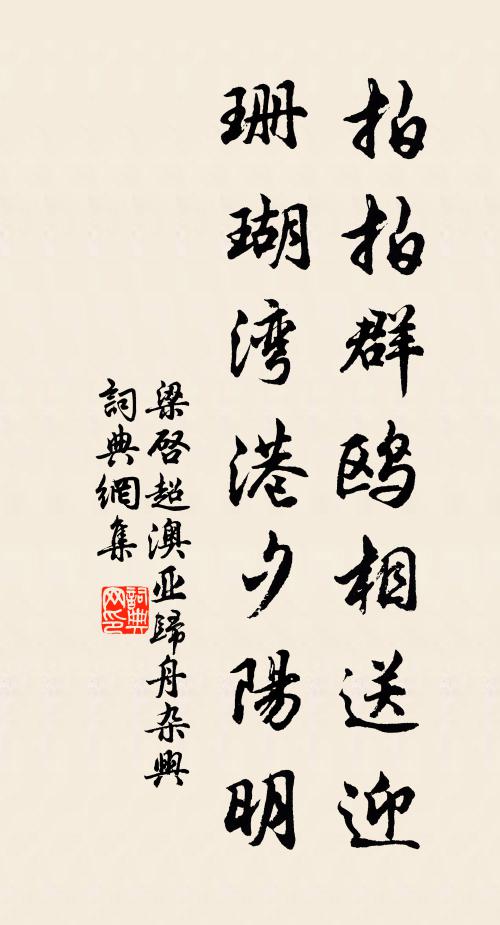 拍拍群鸥相送迎
珊瑚湾港夕陽明
梁啓超澳亚歸舟杂興
詞典網集
詞典网印